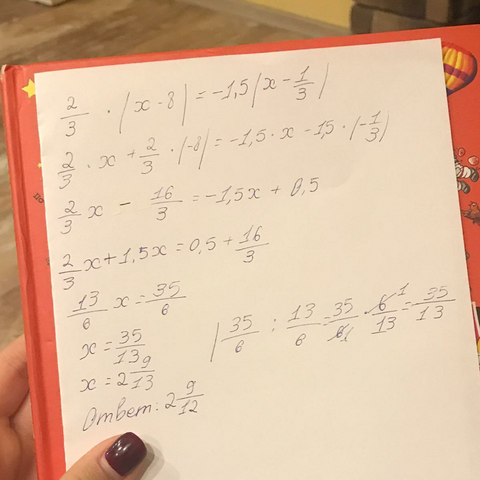 2/3 · (x - 8) = -1,5(x - 1/3)
2/3 · x + 2/3 · (-8) = -1,5 · x - 1,5 · (-1/3)
2/3 x - 16/3 = -1,5x + 0,5
2/3 x + 1,5x = 0,5 + 16/3
13/6 x = 35/6
x = 35/13
x = 2 9/13
| 35/6 : 13/6 = 35/6 1 · 6 1/13 = 35/13
Ответ: 2 9/12